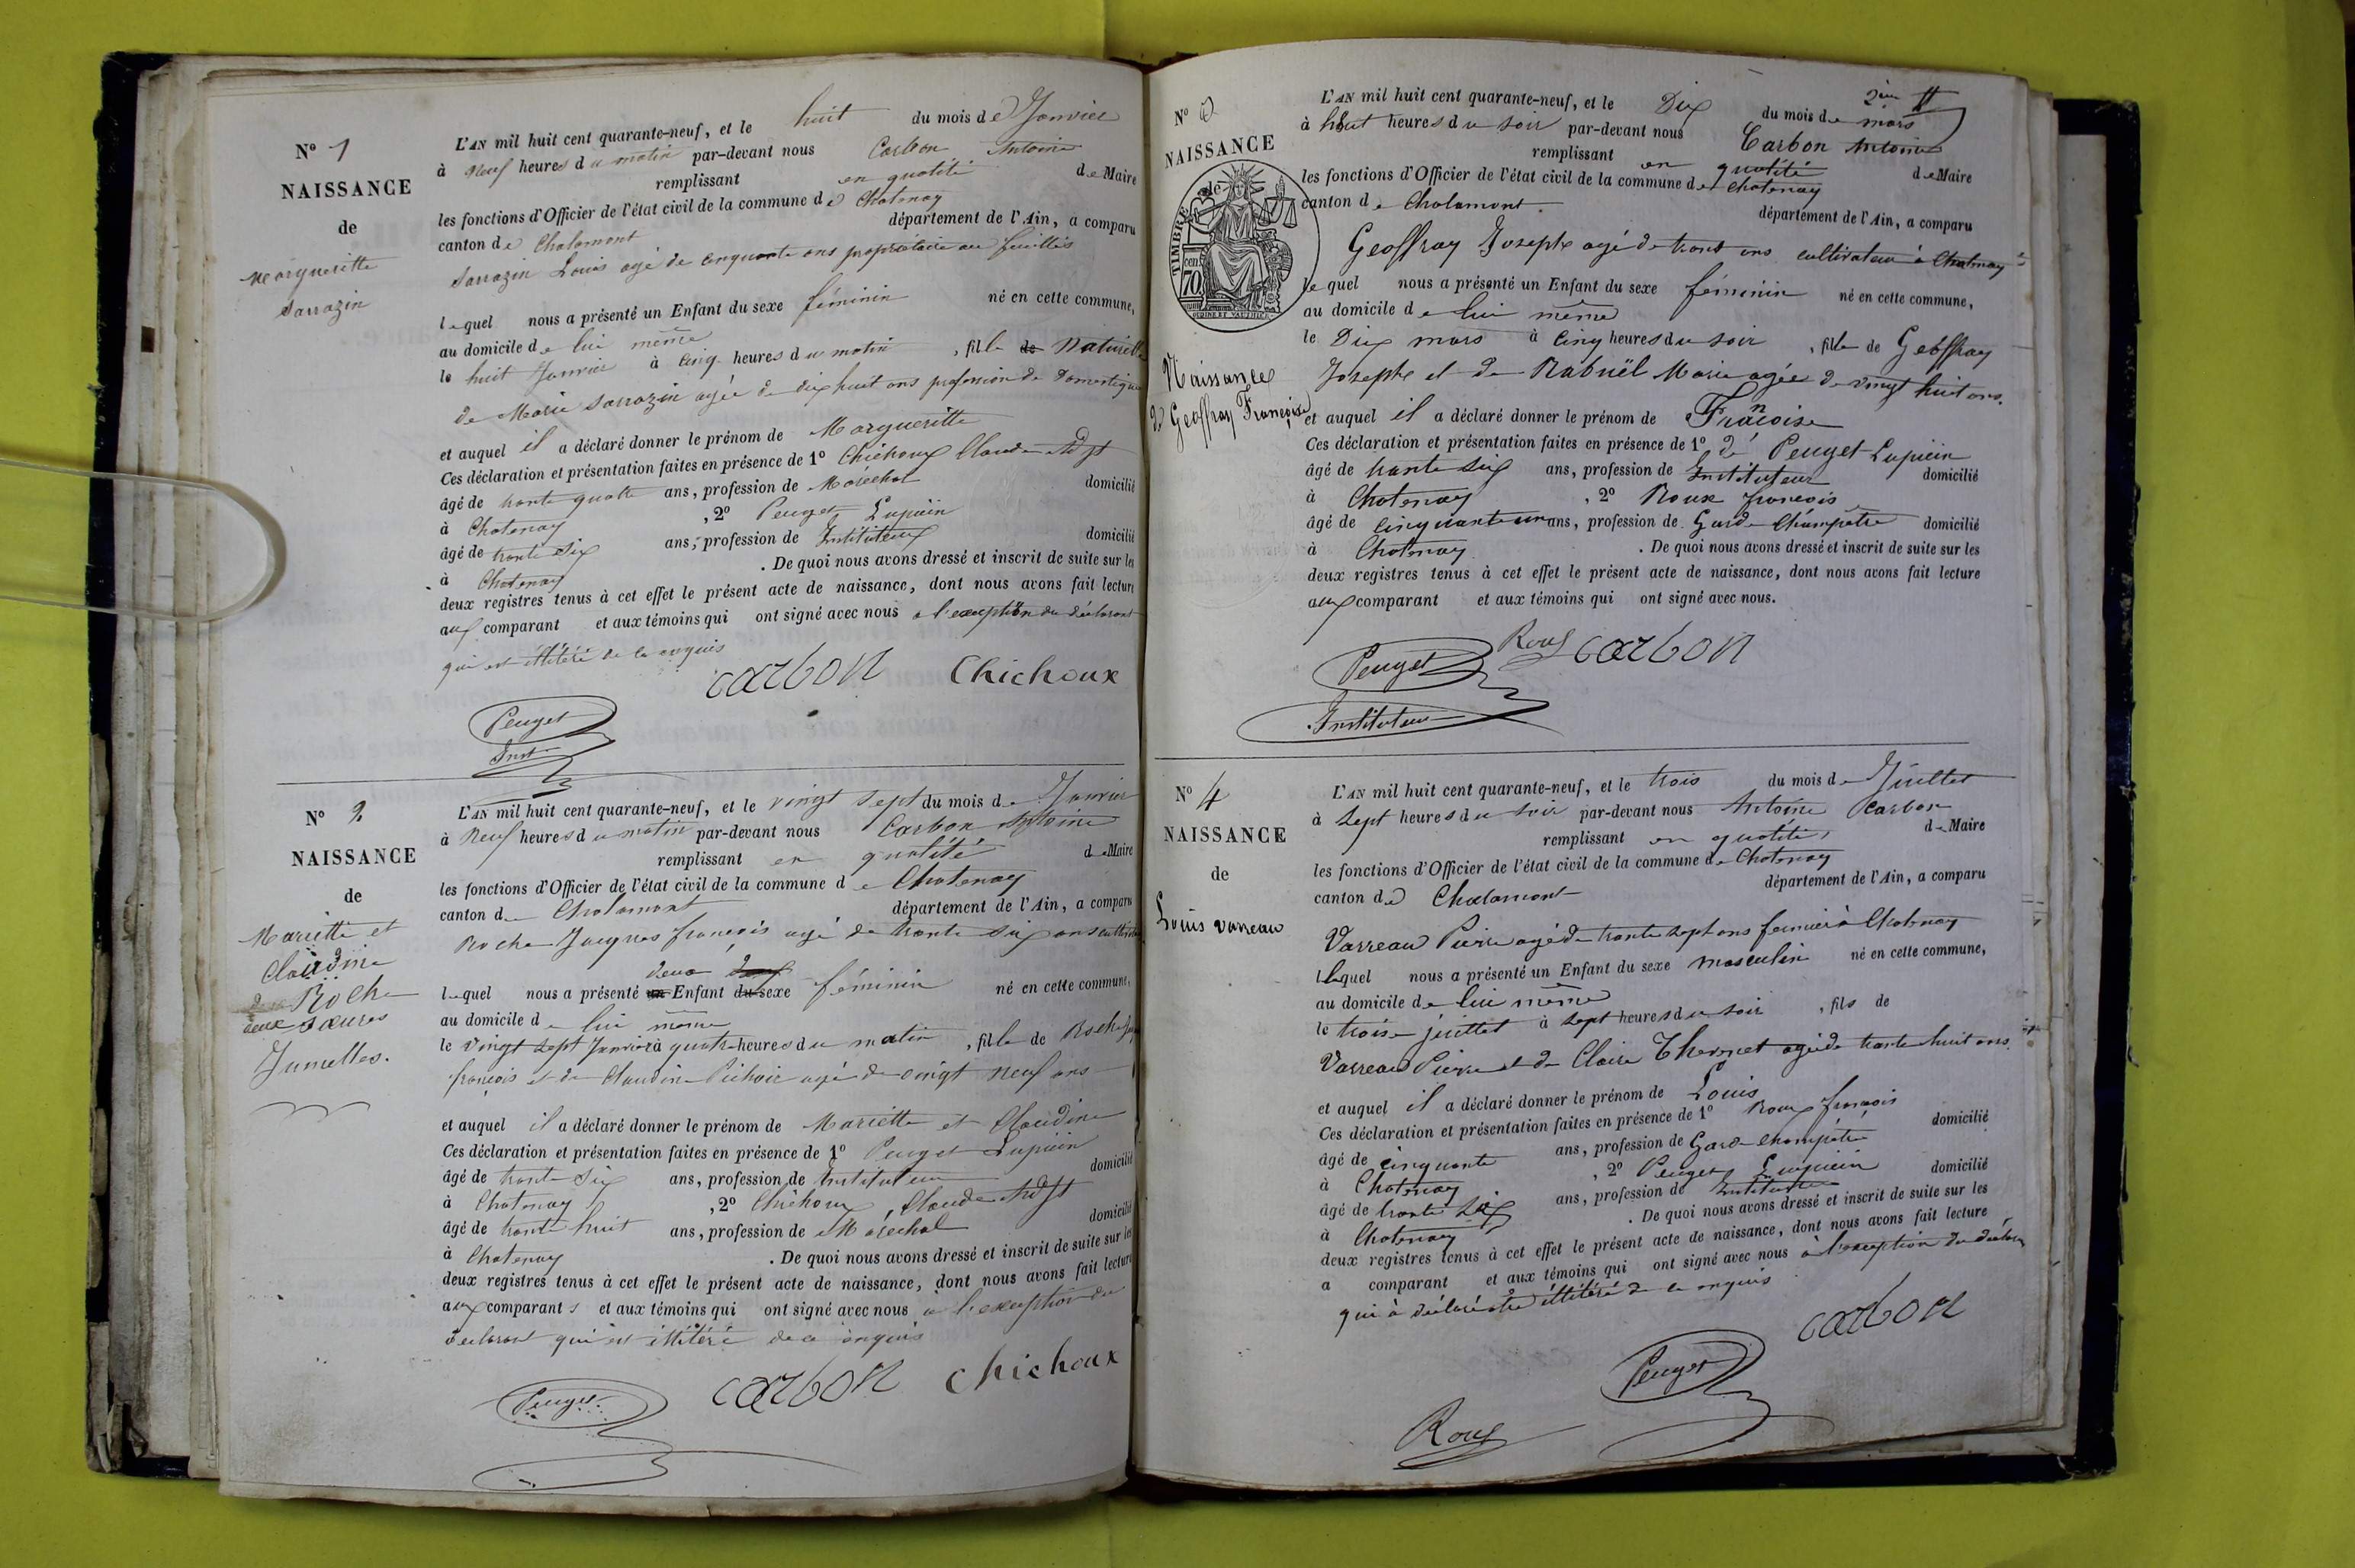 N° 1
NAISSANCE
de
Margueritte
Sarrazin
L'AN mil huit cent quarante-neuf, et le huit du mois de Janvier
à Neuf heures du matin par-devant nous Carbon Antoine
remplissant en qualité de Maire
les fonctions d'Officier de l'état civil de la commune de Chatenay
canton de Chalamont département de l'Ain, a comparu
Sarrazin Louis agé de cinquante ans propriétaire au feuilles
lequel nous a présenté un Enfant du sexe féminin né en cette commune,
au domicile de lui même
le huit Janvier à cinq heures du matin , fille de Naturelle
de Marie Sarrazin agée de dix huit ans profession de Domestique
et auquel il a déclaré donner le prénom de Margueritte
Ces déclaration et présentation faites en présence de 1° Chichoux Claude
âgé de trente quatre ans, profession de Maréchal domicilié
à Chatenay , 2° Peuget Lupicin
âgé de trente six ans, profession de Instituteur domicilié
à Chatenay . De quoi nous avons dressé et inscrit de suite sur les
deux registres tenus à cet effet le présent acte de naissance, dont nous avons fait lecture
aux comparant et aux témoins qui ont signé avec nous a l'exception du déclarant
qui est illitéré de ce enquis
carbon Chichoux
Peuget
Inst
N° 2
NAISSANCE
de
Mariette et
Claudine
Roche
deux sœures
Jumelles.
L'AN mil huit cent quarante-neuf, et le vingt sept du mois de Janvier
à Neuf heures du matin par-devant nous Carbon Antoine
remplissant en qualité de Maire
les fonctions d'Officier de l'état civil de la commune de Chatenay
canton de Chalamont département de l'Ain, a comparu
Roche Jacques françois agé de trente six ans
deux
lequel nous a présenté un Enfant du sexe féminin né en cette commune,
au domicile de lui même
le vingt sept Janvier à quatre heures du matin , fille de Roche
françois et de Claudine Pichoir agé de vingt neuf ans
et auquel il a déclaré donner le prénom de Mariette et Claudine
Ces déclaration et présentation faites en présence de 1° Peuget Lupicin
âgé de trente six ans, profession de Instituteur domicilié
à Chatenay , 2° Chichoux, Claude
âgé de trente huit ans, profession de Maréchal domicilié
à Chatenay . De quoi nous avons dressé et inscrit de suite sur les
deux registres tenus à cet effet le présent acte de naissance, dont nous avons fait lecture
aux comparants et aux témoins qui ont signé avec nous à l'exception du
déclarant qui est illitéré de ce enquis
carbon Chichoux
Peuget
N°
NAISSANCE
TIMBRE
cen 70
Naissance
Geoffray Françoise
L'AN mil huit cent quarante-neuf, et le Dix du mois de mars
à huit heures du soir par-devant nous Carbon Antoine
remplissant en qualité de Maire
les fonctions d'Officier de l'état civil de la commune de Chatenay
canton de Chalamont département de l'Ain, a comparu
Geoffray Josephe agé de trent ans cultivateur à Chatenay
lequel nous a présenté un Enfant du sexe féminin né en cette commune,
au domicile de lui même
le Dix mars à Cinq heures du soir , fille de Geoffray
Josephe et de Rabuël Marie agée de vingt huit ans.
et auquel il a déclaré donner le prénom de Françoise
Ces déclaration et présentation faites en présence de 1° Peuget Lupicin
âgé de trente six ans, profession de Instituteur domicilié
à Chatenay , 2° Roux françois
âgé de cinquante un ans, profession de Garde Champêtre domicilié
à Chatenay . De quoi nous avons dressé et inscrit de suite sur les
deux registres tenus à cet effet le présent acte de naissance, dont nous avons fait lecture
aux comparant et aux témoins qui ont signé avec nous.
Peuget Roux carbon
Instituteur
N° 4
NAISSANCE
de
Louis varreau
L'AN mil huit cent quarante-neuf, et le trois du mois de Juillet
à sept heures du soir par-devant nous Antoine Carbon
remplissant en qualité de Maire
les fonctions d'Officier de l'état civil de la commune de Chatenay
canton de Chalamont département de l'Ain, a comparu
Varreau Pierre agé de trente sept ans fermier à Chatenay
lequel nous a présenté un Enfant du sexe masculin né en cette commune,
au domicile de lui même
le trois juillet à sept heures du soir , fils de
Varreau Pierre et de Claire Thevenet agé de trente huit ans.
et auquel il a déclaré donner le prénom de Louis
Ces déclaration et présentation faites en présence de 1° Roux françois
âgé de cinquante ans, profession de Garde champêtre domicilié
à Chatenay , 2° Peuget Lupicin
âgé de trente six ans, profession de Instituteur domicilié
à Chatenay . De quoi nous avons dressé et inscrit de suite sur les
deux registres tenus à cet effet le présent acte de naissance, dont nous avons fait lecture
a comparant et aux témoins qui ont signé avec nous à l'exception du
qui à déclaré être illitéré de ce enquis
carbon
Peuget
Roux